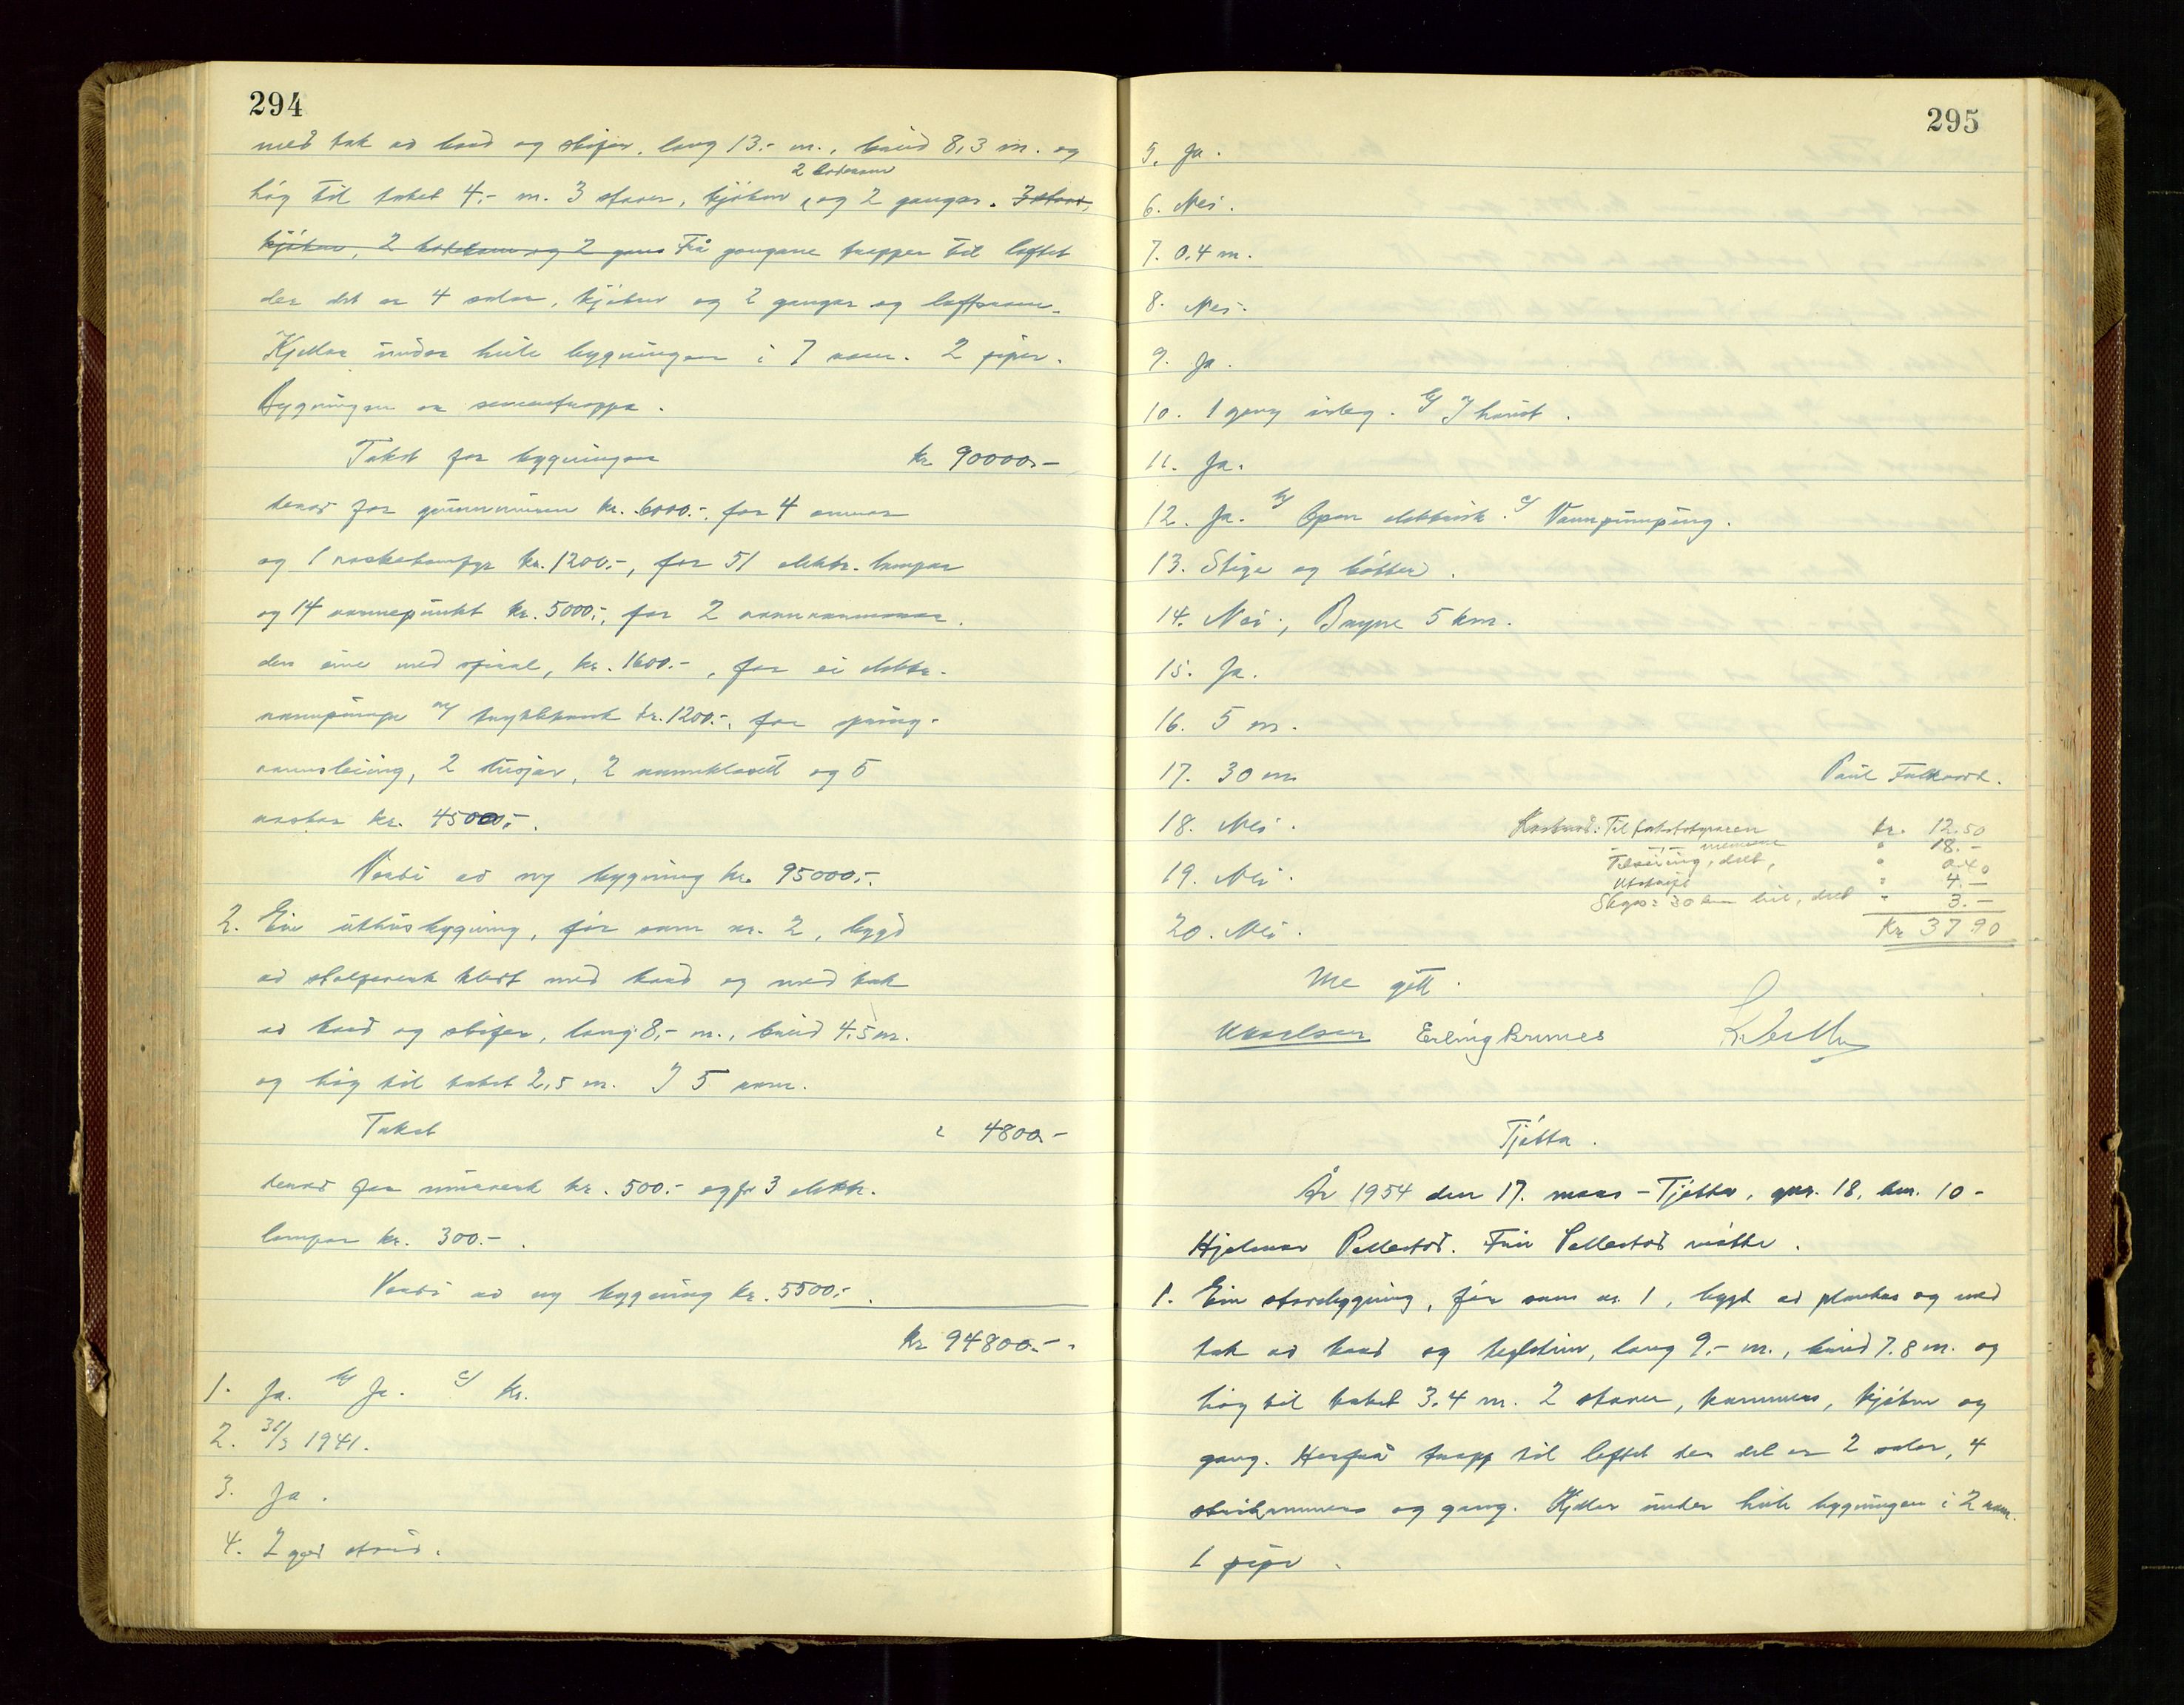 294
med tak av bord og skifer, lang 13.- m., breid 8,3 m. og
2 baderom
høg til taket 4.- m. 3 stover, kjøken, og 2 gangar. 3 stover,
kjøken, 2 baderom og 2 gang Frå gangane trapper til loftet
der det er 4 salar, kjøken og 2 gangar og loftsrom.
Kjellar under heile bygningen i 7 rom. 2 piper.
Bygningen er sementrappa.
Takst for bygningen kr. 90000.-
derav for grunnmuren kr. 6000.-, for 4 omnar
og 1 vaskekomfyr kr. 1200.-, for 51 elektr. lampar
og 14 varmepunkt kr. 5000.-, for 2
den eine med spiral, kr. 1600.-, for ei elektr.
vannpumpe m/ trykktank kr. 1200.-, for spring-
vannsleiing, 2 dusjar, 2 vannklosett og 5
vaskar kr. 4500.-.
Verdi av ny bygning kr. 95000.-.
2. Ein uthusbygning, før som nr. 2, bygd
av stolpeverk kledt med bord og med tak
av bord og skifer, lang 8,- m., breid 4.5 m.
og høg til taket 2,5 m. I 5 rom.
Takst " 4800.-
derav for murverk kr. 500.- og for 3 elektr.
lampar kr. 300.-.
Verdi av ny bygning kr. 5500.-.
kr 94800.-.
1. Ja. b/ Ja. c/ Kr.
2. 31/3 1941.
3. Ja.
4. 2 god stand.
295
5. Ja.
6. Nei.
7. 0.4 m.
8. Nei.
9. Ja.
10. 1 gang årleg. b/ I haust.
11. Ja.
12. Ja. b/ Open elektrisk. c/ Vannpumping.
13. Stige og bøtter.
14. Nei., Bryne 5 km.
15. Ja.
16. 5 m.
17. 30 m. Paul
18. Nei.
Kostnad: Til takststyraren kr. 12.50
- " - mennene " 18.-
19. Nei.
Teikning, delt, " 0.40
Utskrift " 4.-
Skyss: 30 km bil, delt " 3.-
20. Nei.
Kr 37.90
Me gjett.
Erling Brunes
Tjøtta.
År 1954 den 17. mars - Tjøtta, gnr. 18, bnr. 10 -
Hjalmar Pollestad. Fru Pollestad møtte.
1. Ein storebygning, før som nr. 1, bygt av plankar og med
tak av bord og teglstein, lang 9,- m., breid 7.8 m. og
høg til taket 3.4 m. 2 stover, kammers, kjøken og
gang. Herfrå trapp til loftet der det er 2 salar, 4
og gang. Kjellar under heile bygningen i 2 rom.
1 pipe.